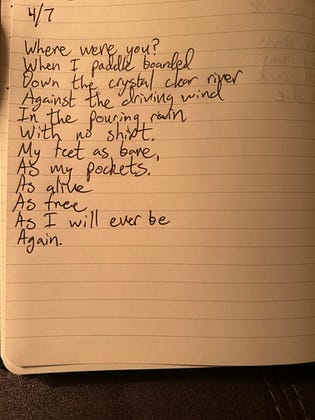 4/7
Where were you?
When I paddle boarded
Down the crystal clear river
Against the driving wind
In the pouring rain
With no shirt.
My feet as bare,
As my pockets.
As alive
As free
As I will ever be
Again.